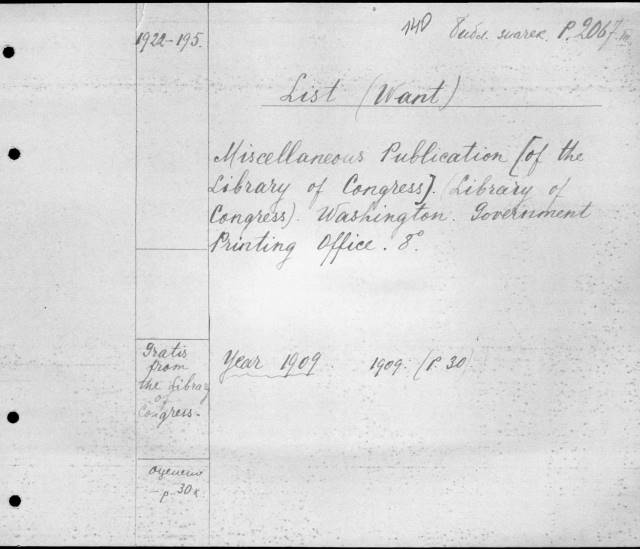 1922-195.
140 Библ. P.2067
List (Want)
Miscellaneous Publication [of the
Library of Congress]. (Library of
Congress). Washington. Government
Printing Office. 8°.
Gratis
from
the Library
of
Congress.
Year 1909 1909. (P. 30)
оценено
р. 30к